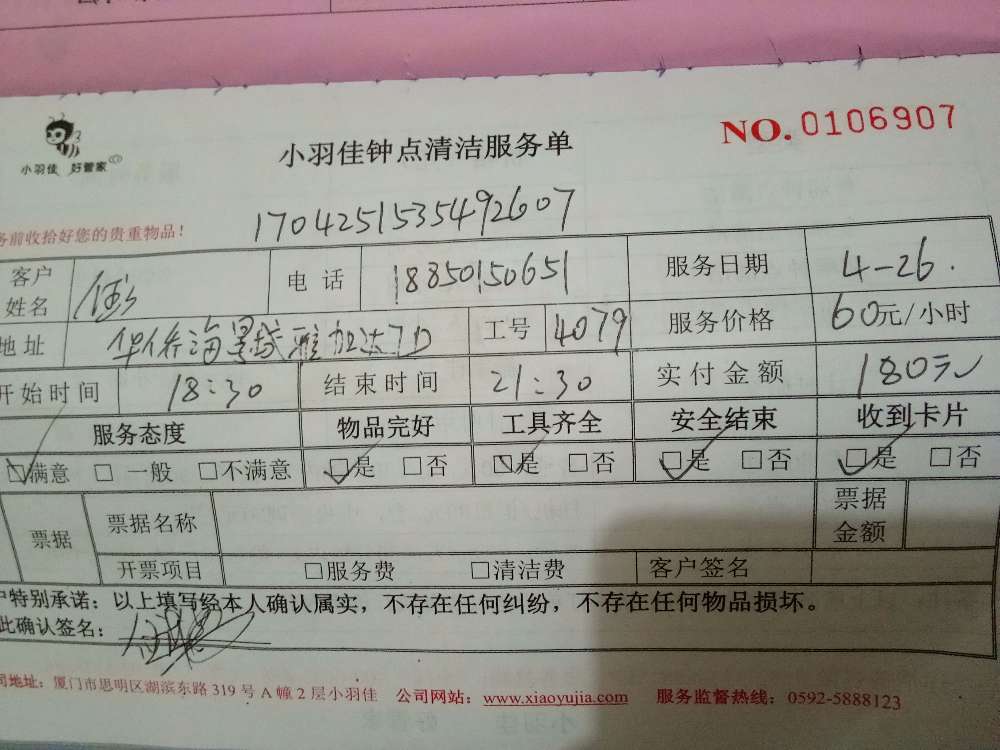 NO.0106907
小羽佳钟点清洁服务单
小羽佳 好管家
1704251535492607
务前收拾好您的贵重物品!
客户姓名 电话 18850150651 服务日期 4-26.
地址 华侨海景城雅加达7D 工号 4079 服务价格 60元/小时
开始时间 18:30 结束时间 21:30 实付金额 180元
服务态度 物品完好 工具齐全 安全结束 收到卡片
☑满意 □一般 □不满意 ☑是 □否 ☑是 □否 ☑是 □否 ☑是 □否
票据 票据名称 票据金额
开票项目 □服务费 □清洁费 客户签名
户特别承诺:以上填写经本人确认属实,不存在任何纠纷,不存在任何物品损坏。
此确认签名:
司地址:厦门市思明区湖滨东路319号A幢2层小羽佳 公司网站:www.xiaoyujia.com 服务监督热线:0592-5888123